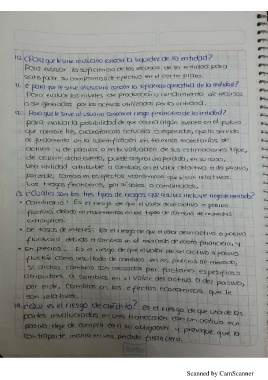 10. ¿Para que le sirve al usuario conocer la liquidez de la entidad?
Para evaluar la suficiencia de los recursos de la entidad para
satisfacer sus compromisos de efectivo en el corto plazo.
11. ¿Para que le sirve al usuario conocer la eficiencia operativa de la entidad?
Para evaluar los niveles de producción o rendimiento de recursos
a ser generados por los activos utilizados por la entidad.
12. ¿Para que le sirve al usuario conocer el riesgo financiero de la entidad?
Para evaluar la posibilidad de que ocurra algún evento en el futuro
que cambie las circunstancias actuales o esperadas, que han servido
de fundamento en la
activos y de pasivos o en la valuación de sus estimaciones y que,
de ocurrir dicho evento, puede originar una pérdida, en su caso,
una utilidad atribuible a cambios en el valor del activo o del pasivo,
por ende, cambios en los efectos económicos que le son relativos.
Los riesgos financieros, por sí solos o combinados.
13. ¿Cuáles son los tres tipos de riesgos que se incluyen en riesgo de mercado?
• Cambiario: Es el riesgo de que el valor de un activo o pasivo
fluctúe debido a movimientos en los tipos de cambio de monedas
extranjeras.
• De tasas de interés: Es el riesgo de que el valor de un activo o pasivo
fluctúe debido a cambios en el mercado de costo financiero, y
• En precios: Es el riesgo de que el valor de un activo o pasivo
fluctúe como resultado de cambios en los precios de mercado,
si dichos cambios son causados por factores específicos
atribuibles a cambios en el valor del activo o del pasivo,
por ende, cambios en los efectos económicos que le
son relativos.
14. ¿Qué es el riesgo de crédito? Es el riesgo de que una de las
partes involucradas en una transacción con un activo o un
pasivo deje de cumplir con su obligación y provoque que la
contraparte incurra en una pérdida financiera.
Scanned by CamScanner